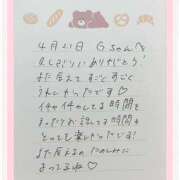 4月21日 Gちゃんへ
久しぶりにありがとう♡
また会えてすごくすごく
うれしかったです♡
イチャイチャしてる時間も
まったりお話してる時間も
とっても楽しかったです!
また会えるの たのしみに
まってるね♡